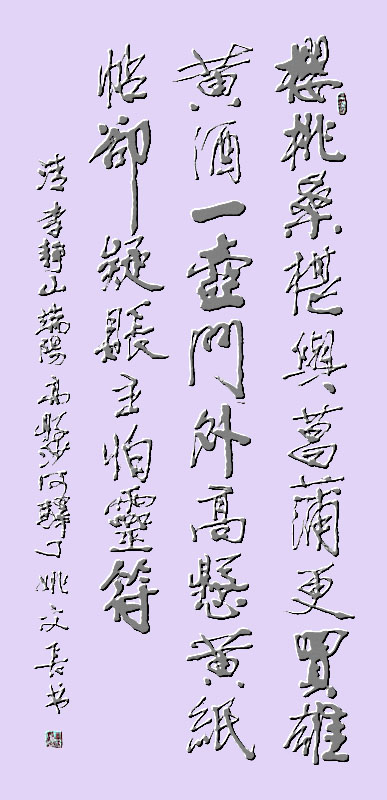 櫻桃桑椹與菖蒲更買雄
黄酒一壺門外高懸黄紙
帖卻疑賬主怕靈符
清李静山端陽高縣沙河驛姚文長书